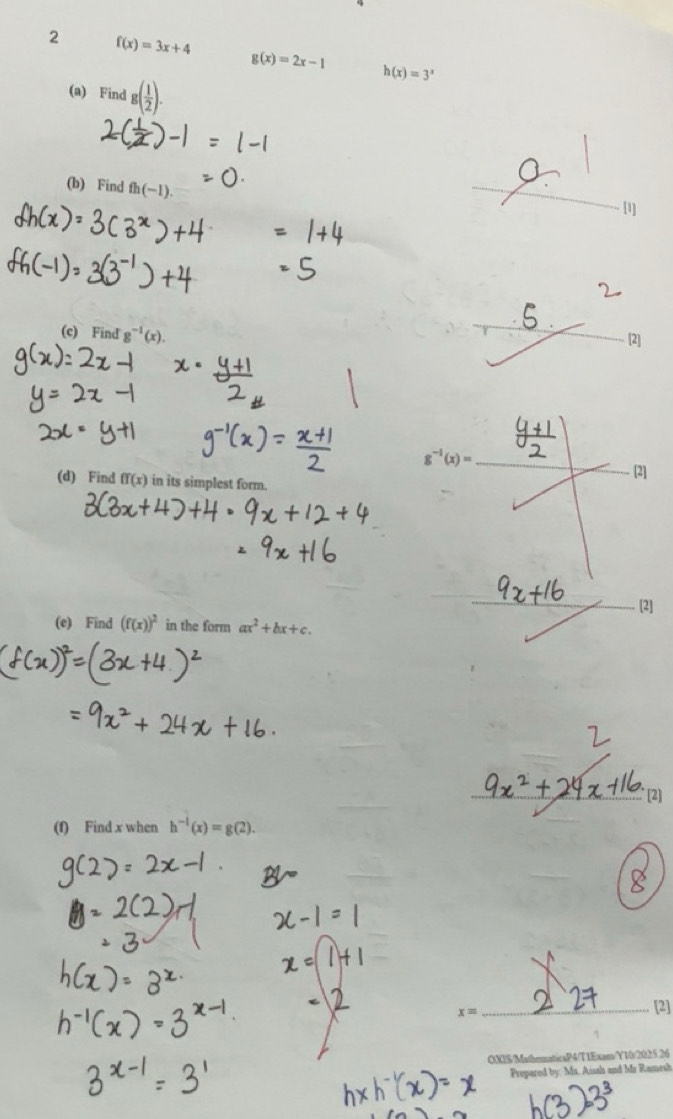 2 f(x) = 3x + 4 g(x) = 2x − 1 h(x) = 3ˣ
(a) Find g(1/2).
2(1/2)−1 = 1−1
= 0.
0. 1
[1]
(b) Find fh(−1).
fh(x) = 3(3ˣ)+4 = 1+4
fh(−1) = 3(3⁻¹)+4 = 5
5. 2
[2]
(c) Find g⁻¹(x).
g(x) = 2x−1 x = y+1/2
y = 2x−1 1
2x = y+1 g⁻¹(x) = x+1/2
g⁻¹(x) = y+1/2 [2]
(d) Find ff(x) in its simplest form.
3(3x+4)+4 = 9x+12+4
= 9x+16
9x+16 [2]
(e) Find (f(x))² in the form ax² + bx + c.
(f(x))² = (3x+4)²
= 9x² + 24x + 16.
2
9x² + 24x + 16. [2]
(f) Find x when h⁻¹(x) = g(2).
8
g(2) = 2x−1.
= 2(2)−1 1 x−1 = 1
= 3 x = 1+1
h(x) = 3ˣ. = 2
h⁻¹(x) = 3ˣ⁻¹.
x = 2 27 [2]
3ˣ⁻¹ = 3¹
OXIS/MathematicsP4/T1Exam/Y10/2025.26
Prepared by: Ms. Aisah and Mr Ramesh
h×h⁻¹(x) = x h(3) = 3³